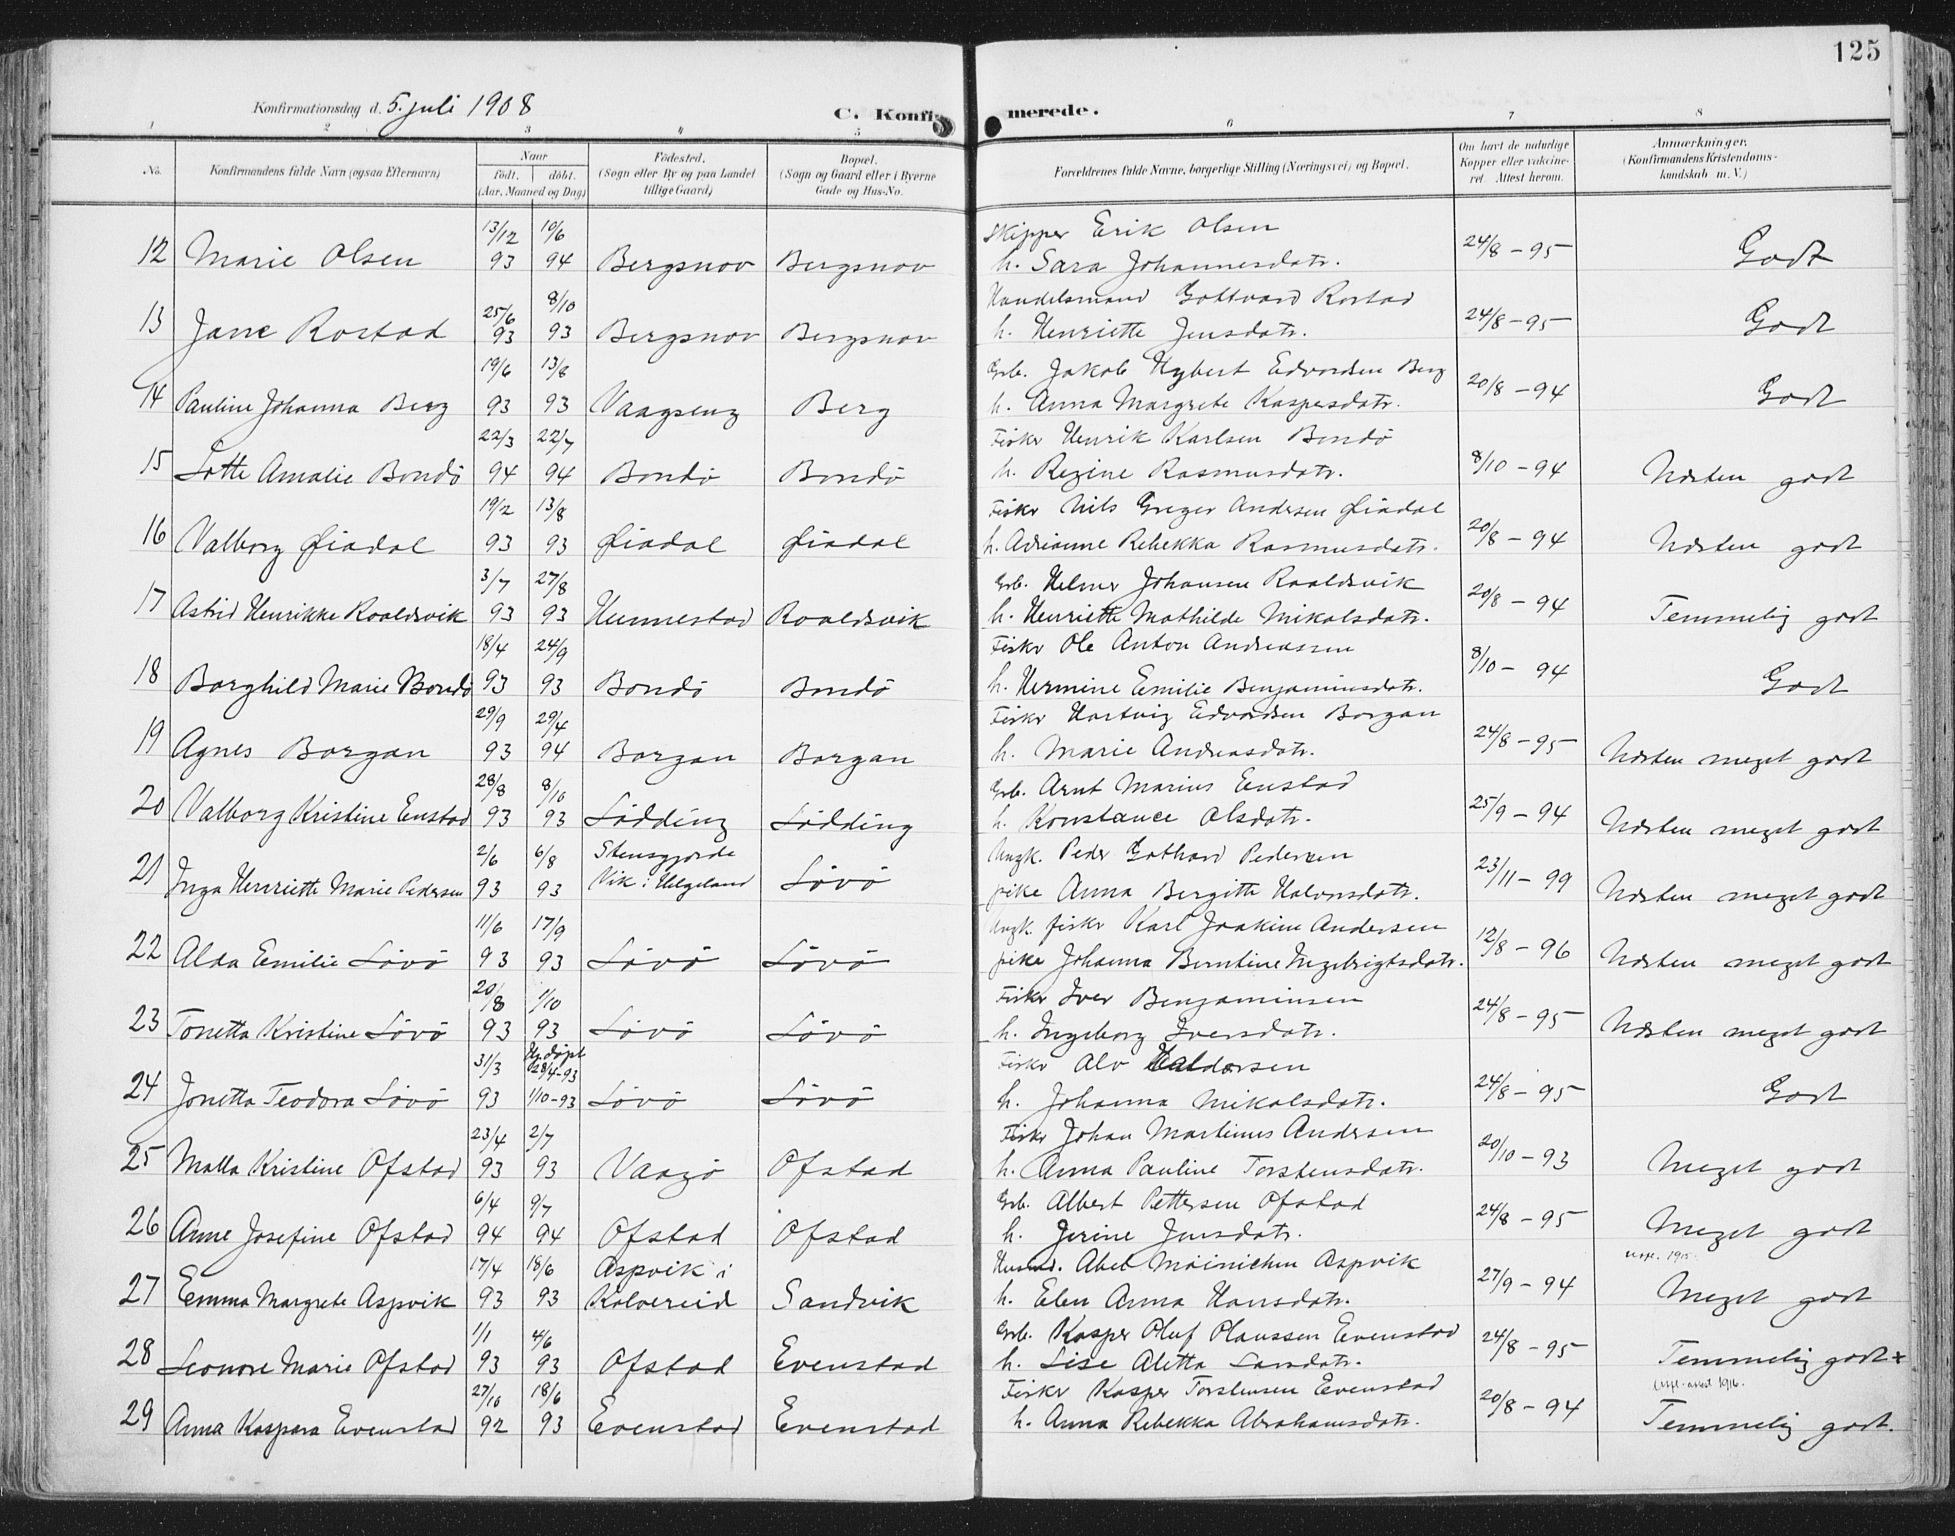 125
Konfirmationsdag d. 5. juli 1908
C. Konfir merede.
1 2 3 4 5 6 7 8
No.
Konfirmandens fulde Navn (ogsaa Efternavn)
Naar
født. døbt.
(Aar, Maaned og Dag)
Fødested.
(Sogn eller By og paa Landet
tillige Gaard)
Bopæl.
(Sogn og Gaard eller i Byerne
Gade og Hus-No.
Forældrenes fulde Navne, borgerlige Stilling (Næringsvei) og Bopæl.
Om havt de naturlige
Kopper eller vaccine-
ret. Attest herom.
Anmærkninger.
(Konfirmandens Kristendoms-
kundskab m. V.)
13/12 10/6 Skipper Erik Olsen
12 Marie Olsen 93 94 Bergsnov Bergsnov h. Sara Johannesdatr. 24/8 - 95 Godt
25/6 8/10 Handelsmand Gottvard Rostad
13 Jane Rostad 93 93 Bergsnov Bergsnov h. Henriette Jensdatr. 24/8 - 95 Godt
19/6 13/8 Grb. Jakob Hybert Edvardsen Berg
14 Pauline Johanna Berg 93 93 Vaagseng Berg h. Anna Margrete Kaspersdatr. 20/8 - 94 Godt
22/3 22/7 Fisker Henrik Karlsen Bondö
15 Lotte Amalie Bondö 94 94 Bondö Bondö h. Regine Rasmusdatr. 8/10 - 94 Næsten godt
19/2 13/8 Fisker Nils Greger Andersen Öiadal
16 Valborg Öiadal 93 93 Öiadal Öiadal h. Adrianne Rebekka Rasmusdatr. 20/8 - 94 Næsten godt
3/7 27/8 Grb. Helmer Johansen Raaldsvik
17 Astrid Henrikke Roaldsvik 93 93 Hunnestad Roaldsvik h. Henriette Mathilde Mikalsdatr. 20/8 - 94 Temmelig godt
18/4 24/9 Fisker Ole Anton Andreassen
18 Borghild Marie Bondö 93 93 Bondö Bondö h. Hermine Emilie Benjaminsdatr. 8/10 - 94 Godt
29/9 29/4 Fisker Hartvig Edvardsen Borgan
19 Agnes Borgan 93 94 Borgan Borgan h. Marie Andreasdatr. 24/8 - 95 Næsten meget godt
28/8 8/10 Grb. Arnt Marius Enstad
20 Valborg Kristine Enstad 93 93 Lödding Lödding h. Konstance Olsdatr. 25/9 - 94 Næsten meget godt
2/6 6/8 Stensgjorde Ungk. Peder Gothard Pedersen
21 Inga Henriette Marie Pedersen 93 93 Vik i Helgeland Lövö pike Anna Bergitte Halvorsdatr. 23/11 - 99 Næsten meget godt
11/6 17/9 Ungk. fisker Karl Joakim Andersen
22 Alda Emilie Lövö 93 93 Lövö Lövö pike Johanna Berntine Ingebrigtsdatr. 12/8 - 96 Næsten meget godt
20/8 1/10 Fisker Iver Benjaminsen
23 Tonetta Kristine Lövö 93 93 Lövö Lövö h. Ingeborg Iversdatr. 24/8 - 95 Næsten meget godt
31/3 Hj. döpt 28/4-93 Fisker Alv Haldorsen
24 Jonetta Teodora Lövö 93 1/10-93 Lövö Lövö h. Johanna Mikalsdatr. 24/8 - 95 Godt
23/4 2/7 Fisker Johan Martinus Andersen
25 Malla Kristine Ofstad 93 93 Vaagö Ofstad h. Anna Pauline Torstensdatr. 20/10 - 93 Meget godt
6/4 9/7 Grb. Albert Pettersen Ofstad
26 Anne Josefine Ofstad 94 94 Ofstad Ofstad h. Jerine Jensdatr. 24/8 - 95 Meget godt
17/4 18/6 Aspvik i Husmd. Abel Möinichen Aspvik 1915.
27 Emma Margrete Aspvik 93 93 Kolvereid Sandvik h. Elen Anna Hansdatr. 27/9 - 94 Meget godt
1/1 4/6 Grb. Kasper Oluf Olaussen Evenstad
28 Leonore Marie Ofstad 93 93 Ofstad Evenstad h. Lise Aletta Larsdatr. 24/8 - 95 Temmelig godt +
27/10 18/6 Fisker Kasper Torstensen Evenstad 1916.
29 Anna Kaspara Evenstad 92 93 Evenstad Evenstad h. Anna Rebekka Abrahamsdatr. 20/8 - 94 Temmelig godt.